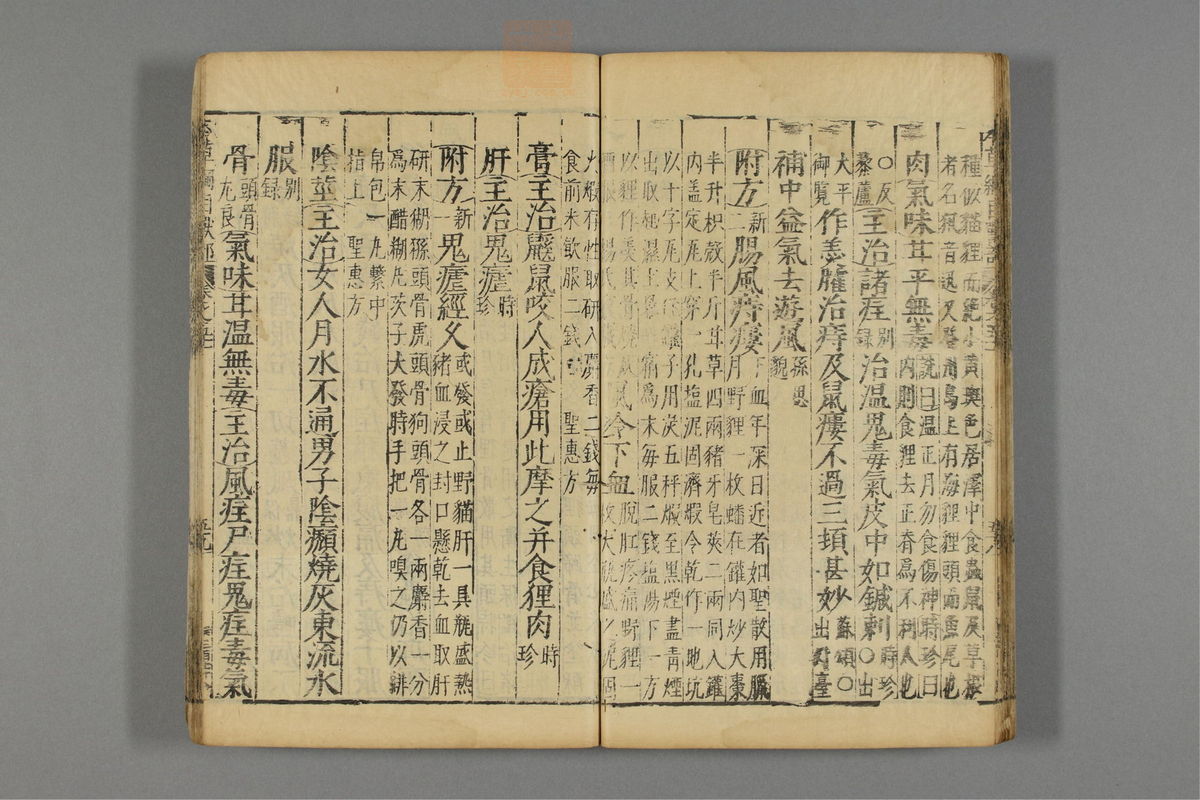 種似貓狸而絕小黃斑色居澤中食蟲鼠及草根
者名𤝞音迅又登州島上有海狸狸頭而魚尾也
肉氣味甘平無毒詵曰溫正月勿食傷神時珍曰
內則食狸去正脊為不利人也
○反
藜蘆主治諸疰別
錄治溫鬼毒氣皮中如鍼刺時珍
○出
太平
御覽作羹臛治痔及鼠瘻不過三頓甚妙蘇頌○
出外臺
補中益氣去遊風孫思
邈
附方新
二腸風痔瘻下血年深日近者如聖散用臘
月野狸一枚蟠在罐內炒大棗
半升枳殼半斤甘草四兩豬牙皂莢二兩同入罐
內蓋定瓦上穿一孔鹽泥固濟煅令乾作一地坑
以十字瓦支住罐子用炭五秤煅至黑煙盡青煙
出取起濕土罨一宿為末每服二錢鹽湯下一方
以狸作羹其骨燒灰酒服
下血脫肛疼痛野狸一
火煅存性取研入麝香二錢每
食前米飲服二錢 聖惠方
膏主治鼷鼠咬人成瘡用此摩之并食狸肉時
珍
肝主治鬼瘧時
珍
附方新
一鬼瘧經久或發或止野貓肝一具瓶盛熱
豬血浸之封口懸乾去血取肝
研末猢猻頭骨虎頭骨狗頭骨各一兩麝香一分
為末醋糊丸芡子大發時手把一丸嗅之仍以緋
帛包一丸繫中
指上 聖惠方
陰莖主治女人月水不通男子陰㿗燒灰東流水
服別
錄
骨頭骨
尤良氣味甘溫無毒主治風疰尸疰鬼疰毒氣